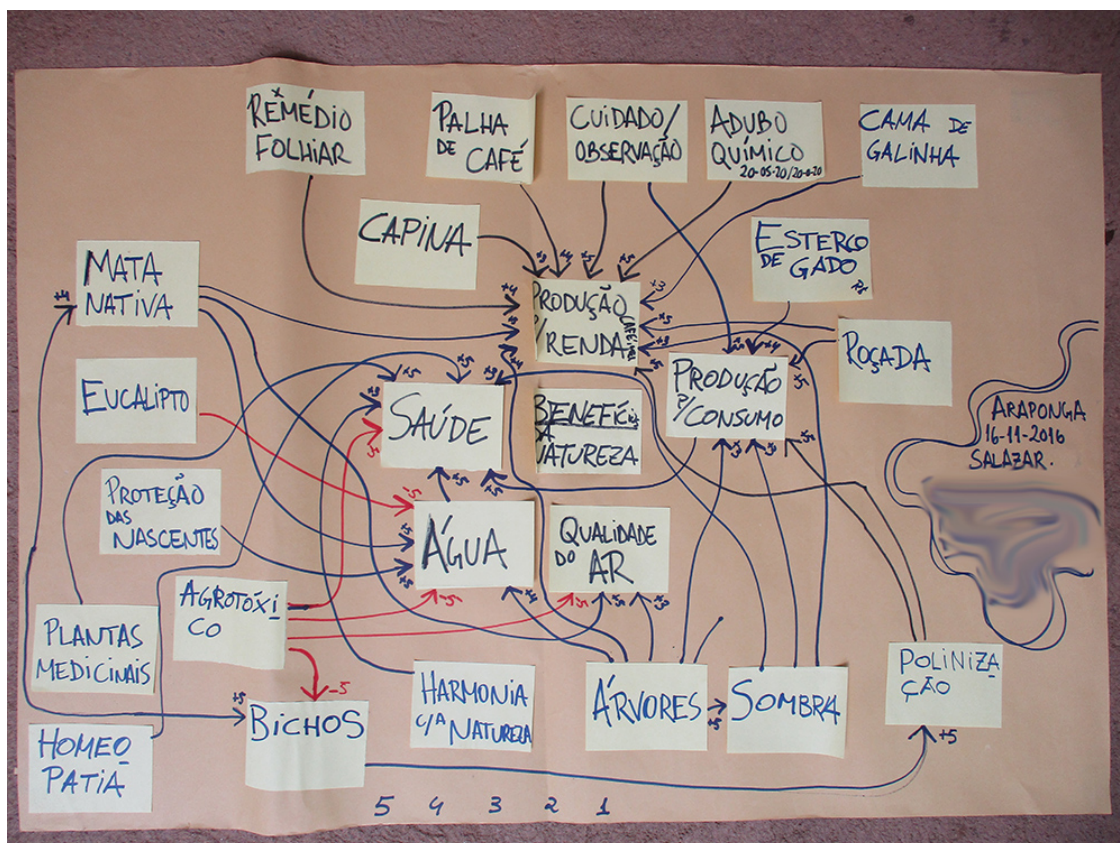 REMÉDIO
FOLHIAR
PALHA
DE CAFÉ
CUIDADO/
OBSERVAÇÃO
ADUBO
QUÍMICO
20-05-20/20-0-20
CAMA DE
GALINHA
CAPINA
ESTERCO
DE GADO
MATA
NATIVA
PRODUÇÃO
P/RENDA
ROÇADA
EUCALIPTO
SAÚDE
BENEFÍCIOS
DA
NATUREZA
PRODUÇÃO
P/CONSUMO
ARAPONGA
16-11-2016
SALAZAR.
PROTEÇÃO
DAS
NASCENTES
ÁGUA
QUALIDADE
DO AR
AGROTÓXI
CO
PLANTAS
MEDICINAIS
BICHOS
HARMONIA
C/A NATUREZA
ÁRVORES
SOMBRA
POLINIZA
ÇÃO
HOMEO
PATIA
5 4 3 2 1
+4
+3
+4
+5
+5
+4
+3
+5
+3
+5
+4
+5
+5
+5
+5
+3
+3
-5
+5
+5
-5
+5
+5
-5
-5
+3
-5
+5
+5
+5